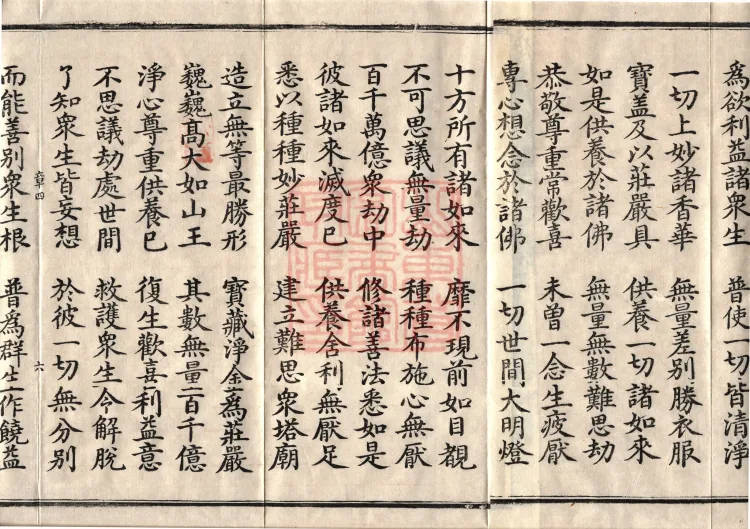 為欲利益諸衆生　普使一切皆清淨
一切上妙諸香華　無量差別勝衣服
寶盖及以莊嚴具　供養一切諸如來
如是供養於諸佛　無量無數難思劫
恭敬尊重常歡喜　未曾一念生疲厭
專心想念於諸佛　一切世間大明燈
十方所有諸如來　靡不現前如目覩
不可思議無量劫　種種布施心無厭
百千萬億衆劫中　修諸善法悉如是
彼諸如來滅度已　供養舍利無厭足
悉以種種妙莊嚴　建立難思衆塔廟
造立無等最勝形　寶藏淨金為莊嚴
巍巍髙大如山王　其數無量百千億
淨心尊重供養已　復生歡喜利益意
不思議劫處世間　救護衆生令解脫
了知衆生皆妄想　於彼一切無分別
章四　六
而能善別衆生根　普為群生作饒益